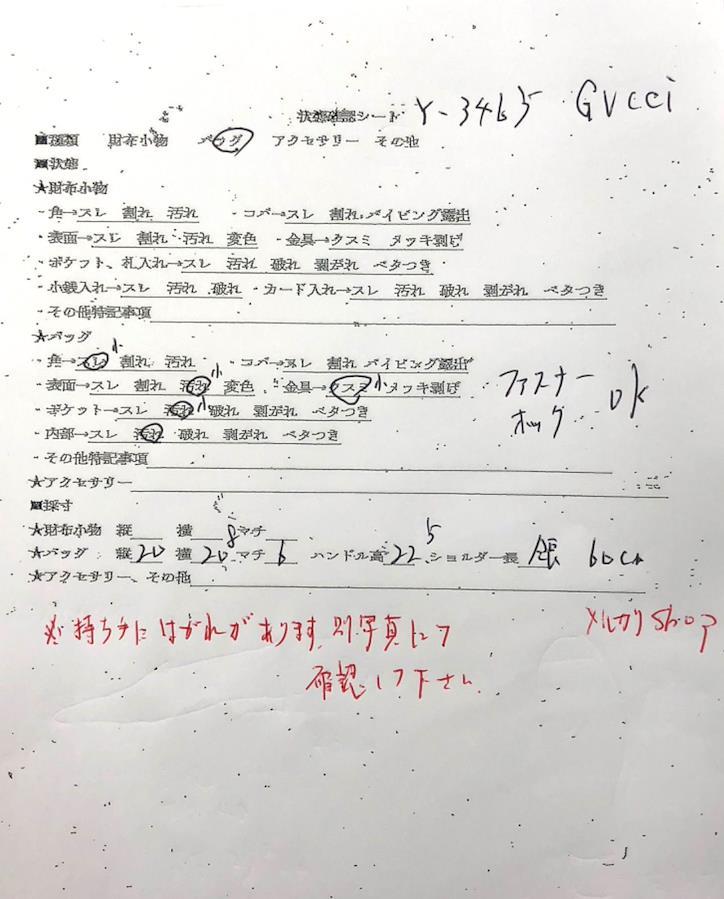 状態確認シート Y-3465 GUCCI
■種類 財布小物 バッグ アクセサリー その他
■状態
★財布小物
・角→スレ 割れ 汚れ ・コバ→スレ 割れ パイピング露出
・表面→スレ 割れ 汚れ 変色 ・金具→クスミ メッキ剥げ
・ポケット、札入れ→スレ 汚れ 破れ 剥がれ ベタつき
・小銭入れ→スレ 汚れ 破れ ・カード入れ→スレ 汚れ 破れ 剥がれ ベタつき
・その他特記事項
★バッグ
・角→スレ小 割れ 汚れ ・コバ→スレ 割れ パイピング露出
・表面→スレ 割れ 汚れ小 変色 ・金具→クスミ小 メッキ剥げ
ファスナー
ホック OK
・ポケット→スレ 汚れ小 破れ 剥がれ ベタつき
・内部→スレ 汚れ 破れ 剥がれ ベタつき
・その他特記事項
★アクセサリー
■採寸
★財布小物 縦 横 マチ
★バッグ 縦20 横20 マチ6 ハンドル高22 ショルダー長 60cm
★アクセサリー、その他
※持ち手にはがれがあります。別写真にて
確認して下さい
メルカリShop